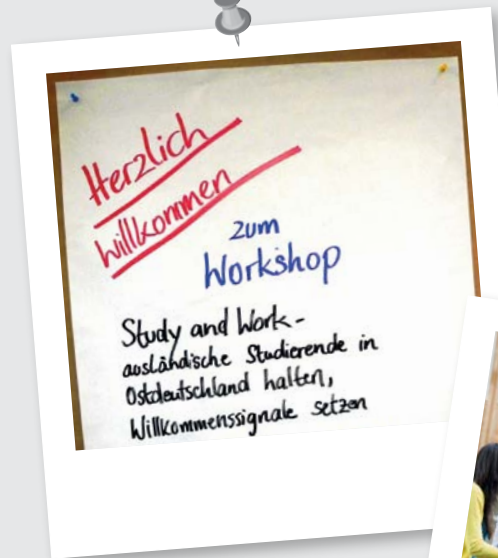 Herzlich
willkommen
zum
Workshop
Study and Work-
ausländische Studierende in
Ostdeutschland halten,
Willkommenssignale setzen